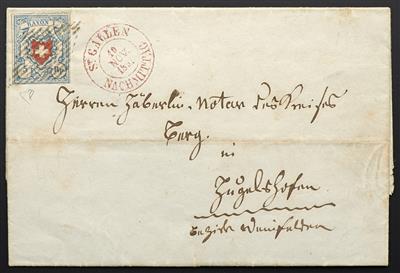 RAYON
ST GALLEN
19
NOV.
185
NACHMITTAG
Herren Häberlin, Notar des Kreises
Berg.
in
Hügelshofen
Bezirk Weinfelden